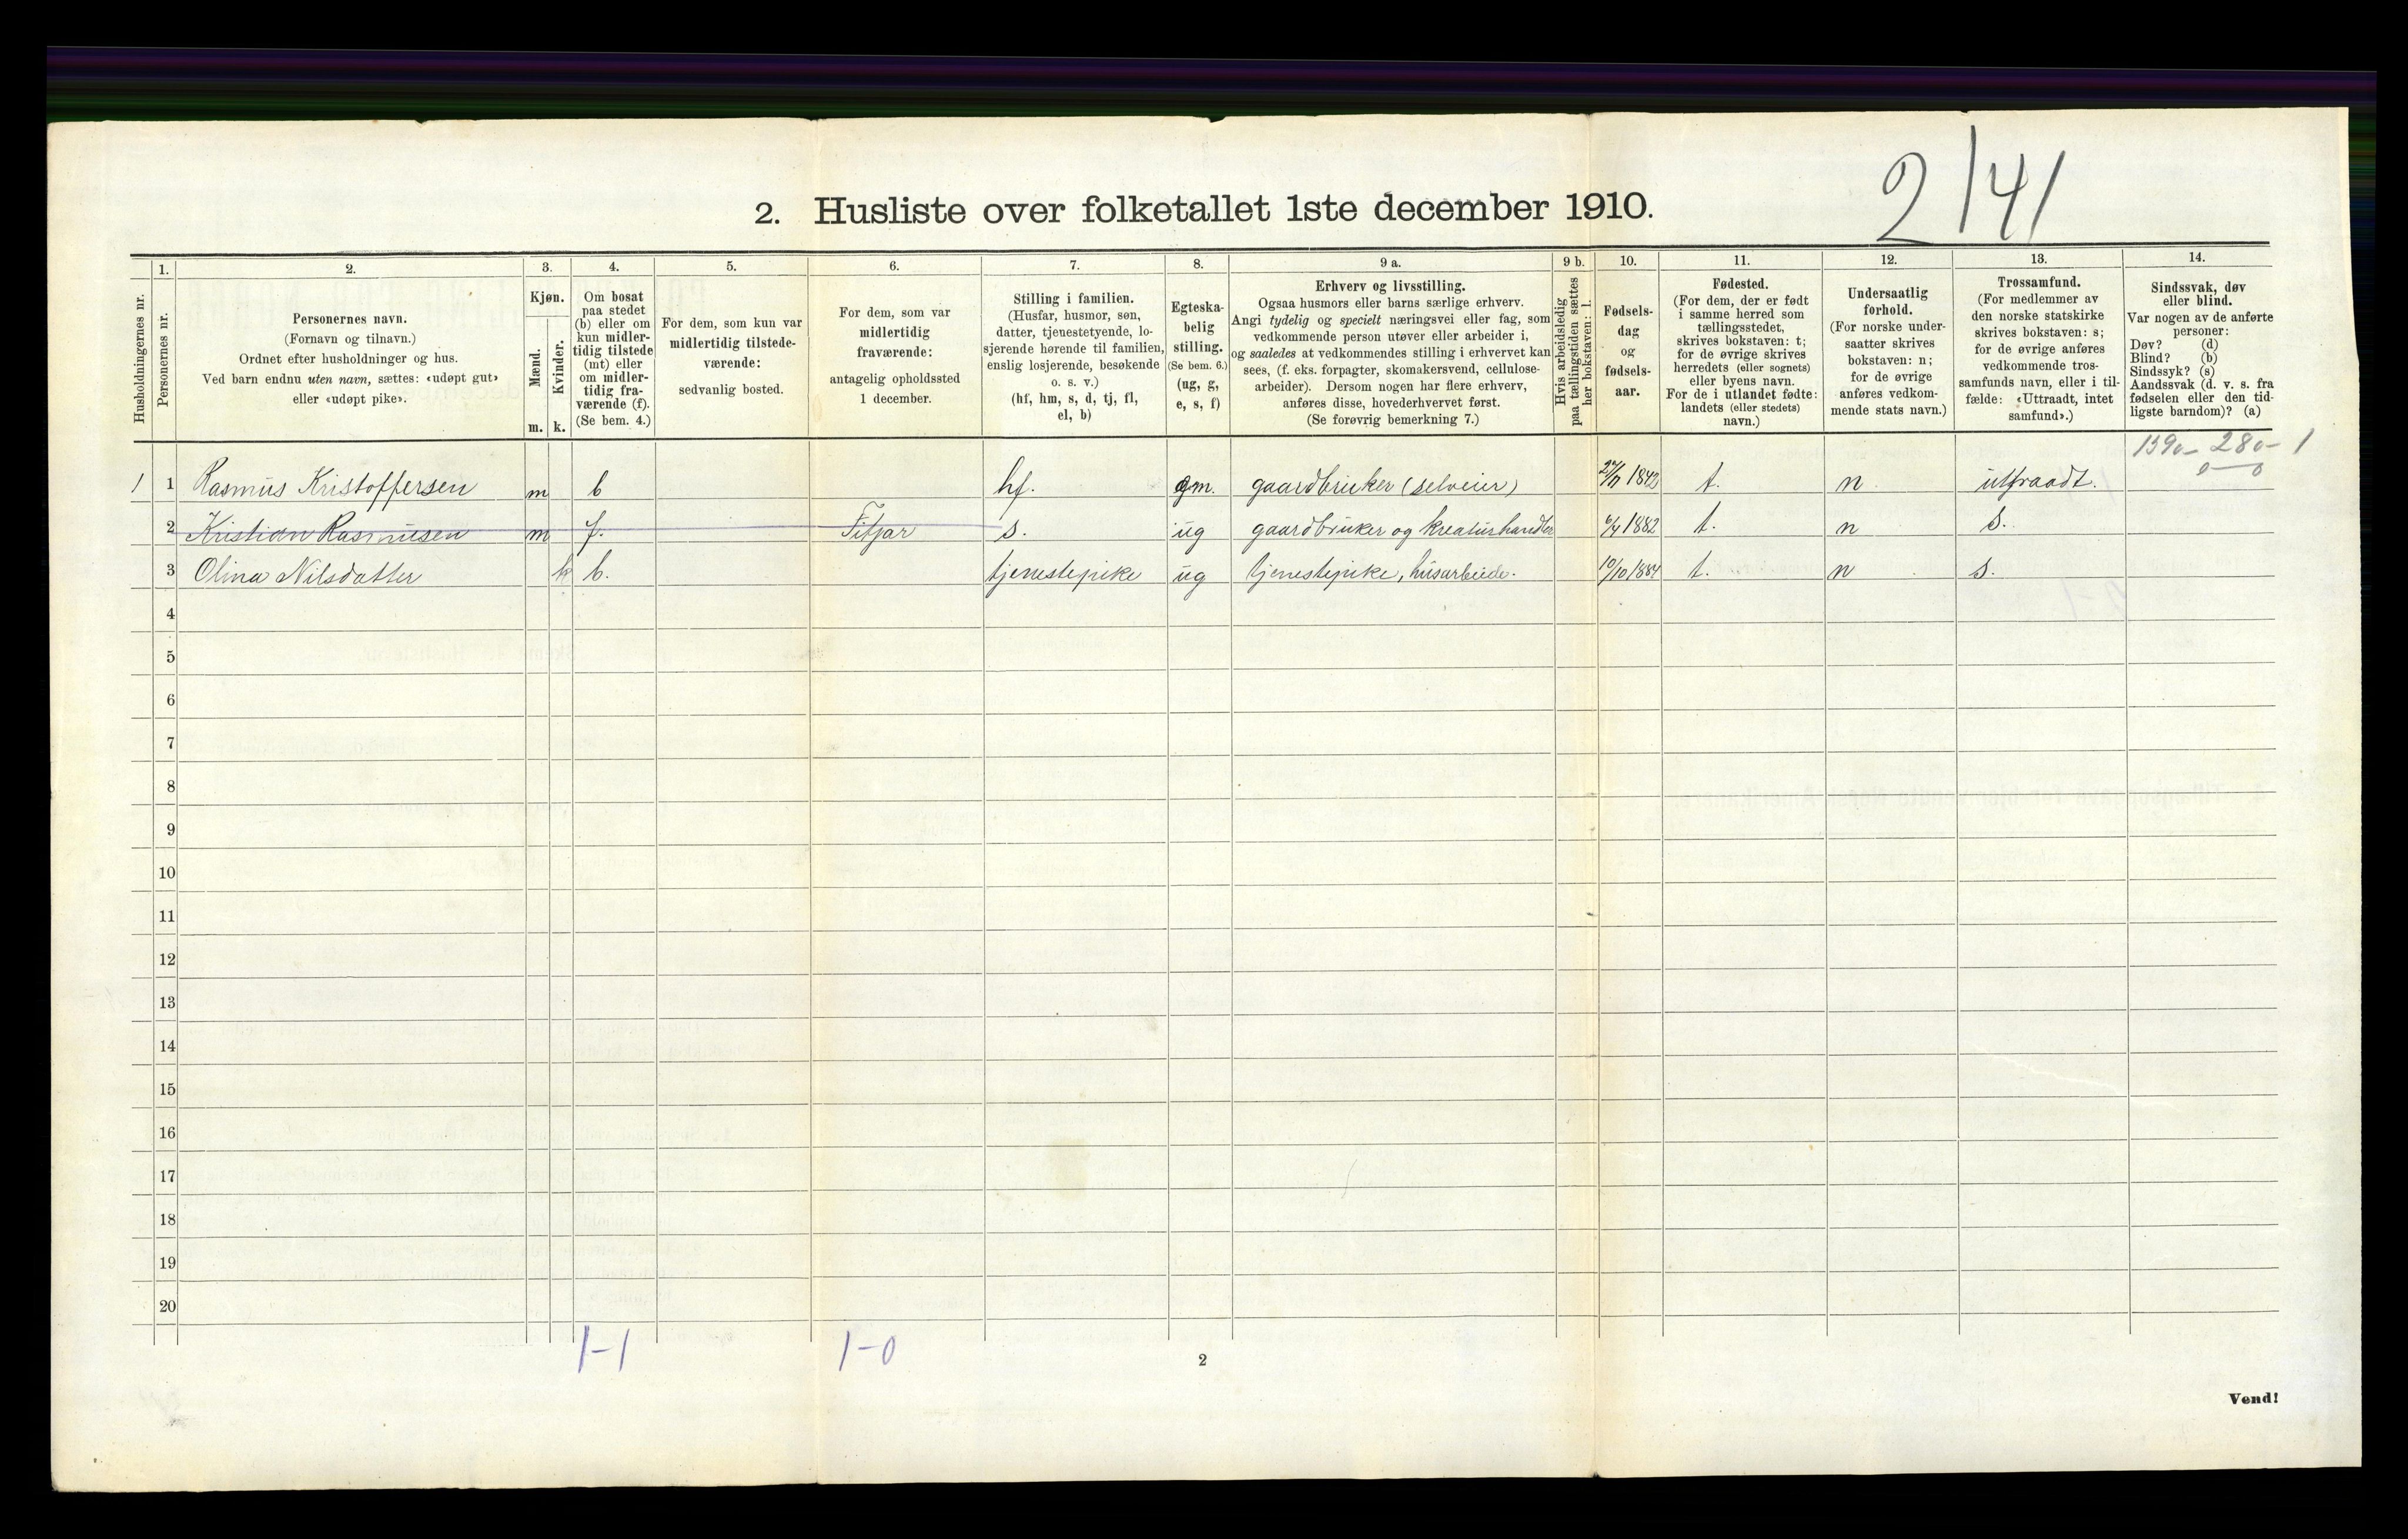 2/41
2. Husliste over folketallet 1ste december 1910.
Husholdningernes nr.
1.
Personernes nr.
2.
Personernes navn.
(Fornavn og tilnavn.)
Ordnet efter husholdninger og hus.
Ved barn endnu uten navn, sættes: «udøpt gut»
eller «udøpt pike».
3.
Kjøn.
Mænd.
Kvinder.
m. k.
4.
Om bosat
paa stedet
(b) eller om
kun midler-
tidig tilstede
(mt) eller
om midler-
tidig fra-
værende (f).
(Se bem. 4.)
5.
For dem, som kun var
midlertidig tilstede-
værende:
sedvanlig bosted.
6.
For dem, som var
midlertidig
fraværende:
antagelig opholdssted
1 december.
7.
Stilling i familien.
(Husfar, husmor, søn,
datter, tjenestetyende, lo-
sjerende hørende til familien,
enslig losjerende, besøkende
o. s. v.)
(hf, hm, s, d, tj, fl,
el, b)
8.
Egteska-
belig
stilling.
(Se bem. 6.)
(ug, g,
e, s, f)
9 a.
Erhverv og livsstilling.
Ogsaa husmors eller barns særlige erhverv.
Angi tydelig og specielt næringsvei eller fag, som
vedkommende person utøver eller arbeider i,
og saaledes at vedkommendes stilling i erhvervet kan
sees, (f. eks. forpagter, skomakersvend, cellulose-
arbeider). Dersom nogen har flere erhverv,
anføres disse, hovederhvervet først.
(Se forøvrig bemerkning 7.)
9 b.
Hvis arbeidsledig
paa tællingstiden sættes
her bokstaven: l.
10.
Fødsels-
dag
og
fødsels-
aar.
11.
Fødested.
(For dem, der er født
i samme herred som
tællingsstedet,
skrives bokstaven: t;
for de øvrige skrives
herredets (eller sognets)
eller byens navn.
For de i utlandet fødte:
landets (eller stedets)
navn.)
12.
Undersaatlig
forhold.
(For norske under-
saatter skrives
bokstaven: n;
for de øvrige
anføres vedkom-
mende stats navn.)
13.
Trossamfund.
(For medlemmer av
den norske statskirke
skrives bokstaven: s;
for de øvrige anføres
vedkommende tros-
samfunds navn, eller i til-
fælde: «Uttraadt, intet
samfund».)
14.
Sindssvak, døv
eller blind.
Var nogen av de anførte
personer:
Døv? (d)
Blind? (b)
Sindssyk? (s)
Aandssvak (d. v. s. fra
fødselen eller den tid-
ligste barndom)? (a)
1390 - 280 - 1
0 - 0
1 1 Rasmus Kristoffersen m b hf. gm. gaardbruker (selveier) 1842 t. n utraadt.
2 Kristian Rasmussen m f. Fitjar s. ug gaardbruker og kreaturhandler 6/4 1882 t. n s.
3 Olina Nilsdatter k b. tjenestepike ug tjenestepike, husarbeide. 10/10 1884 t. n s.
4
5
6
7
8
9
10
11
12
13
14
15
16
17
18
19
20
1-1 1-0
2
Vend!